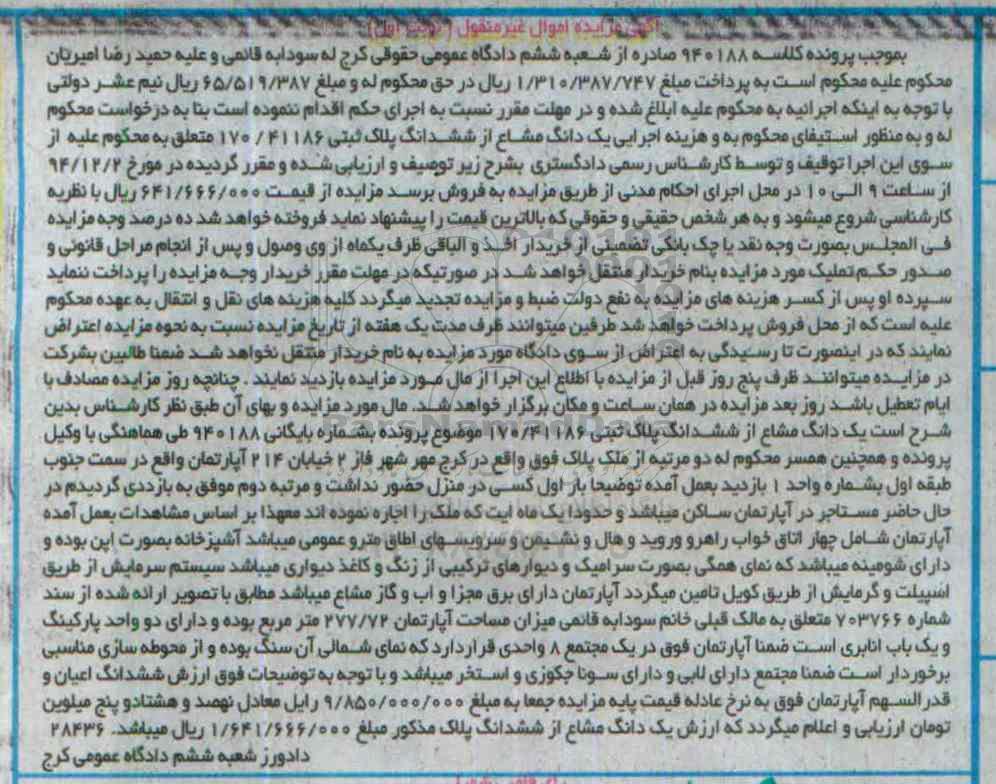 آگهی مزایده اموال غیرمنقول (نوبت اول)
بموجب پرونده کلاسه ۹۴۰۱۸۸ صادره از شعبه ششم دادگاه عمومی حقوقی کرج له سودابه قائمی و علیه حمید رضا امیریان
محکوم علیه محکوم است به پرداخت مبلغ ۱/۳۱۰/۳۸۷/۷۴۷ ریال در حق محکوم له و مبلغ ۶۵/۵۱۹/۳۸۷ ریال نیم عشر دولتی
با توجه به اینکه اجرائیه به محکوم علیه ابلاغ شده و در مهلت مقرر نسبت به اجرای حکم اقدام ننموده است بنا به درخواست محکوم
له و به منظور استیفای محکوم به و هزینه اجرایی یک دانگ مشاع از ششدانگ پلاک ثبتی ۱۷۰/۴۱۱۸۶ متعلق به محکوم علیه از
سوی این اجرا توقیف و توسط کارشناس رسمی دادگستری بشرح زیر توصیف و ارزیابی شده و مقرر گردیده در مورخ ۹۴/۱۲/۲
از ساعت ۹ الی ۱۰ در محل اجرای احکام مدنی از طریق مزایده به فروش برسد مزایده از قیمت ۶۴۱/۶۶۶/۰۰۰ ریال با نظریه
کارشناسی شروع میشود و به هر شخص حقیقی و حقوقی که بالاترین قیمت را پیشنهاد نماید فروخته خواهد شد ده درصد وجه مزایده
فی المجلس بصورت وجه نقد یا چک بانکی تضمینی از خریدار اخذ و الباقی ظرف یکماه از وی وصول و پس از انجام مراحل قانونی و
صدور حکم تملیک مورد مزایده بنام خریدار منتقل خواهد شد در صورتیکه در مهلت مقرر خریدار وجه مزایده را پرداخت ننماید
سپرده او پس از کسر هزینه های مزایده به نفع دولت ضبط و مزایده تجدید میگردد کلیه هزینه های نقل و انتقال به عهده محکوم
علیه است که از محل فروش پرداخت خواهد شد طرفین میتوانند ظرف مدت یک هفته از تاریخ مزایده نسبت به نحوه مزایده اعتراض
نمایند که در اینصورت تا رسیدگی به اعتراض از سوی دادگاه مورد مزایده به نام خریدار منتقل نخواهد شد ضمنا طالبین بشرکت
در مزایده میتوانند ظرف پنج روز قبل از مزایده با اطلاع این اجرا از مال مورد مزایده بازدید نمایند . چنانچه روز مزایده مصادف با
ایام تعطیل باشد روز بعد مزایده در همان ساعت و مکان برگزار خواهد شد. مال مورد مزایده و بهای آن طبق نظر کارشناس بدین
شرح است یک دانگ مشاع از ششدانگ پلاک ثبتی ۱۷۰/۴۱۱۸۶ موضوع پرونده بشماره بایگانی ۹۴۰۱۸۸ طی هماهنگی با وکیل
پرونده و همچنین همسر محکوم له دو مرتبه از ملک پلاک فوق واقع در کرج مهر شهر فاز ۲ خیابان ۲۱۴ آپارتمان واقع در سمت جنوب
طبقه اول بشماره واحد ۱ بازدید بعمل آمده توضیحا بار اول کسی در منزل حضور نداشت و مرتبه دوم موفق به بازددی گردیدم در
حال حاضر مستاجر در آپارتمان ساکن میباشد و حدودا یک ماه ایت که ملک را اجاره نموده اند معهذا بر اساس مشاهدات بعمل آمده
آپارتمان شامل چهار اتاق خواب راهرو وروید و هال و نشیمن و سرویسهای اطاق مترو عمومی میباشد آشپزخانه بصورت اپن بوده و
دارای شومینه میباشد که نمای همگی بصورت سرامیک و دیوارهای ترکیبی از زنگ و کاغذ دیواری میباشد سیستم سرمایش از طریق
اسپیلت و گرمایش از طریق کویل تامین میگردد آپارتمان دارای برق مجزا و اب و گاز مشاع میباشد مطابق با تصویر ارائه شده از سند
شماره ۷۰۳۷۶۶ متعلق به مالک قبلی خانم سودابه قائمی میزان مساحت آپارتمان ۲۷۷/۷۲ متر مربع بوده و دارای دو واحد پارکینگ
و یک باب انباری است ضمنا آپارتمان فوق در یک مجتمع ۸ واحدی قرار دارد که نمای شمالی آن سنگ بوده و از محوطه سازی مناسبی
برخوردار است ضمنا مجتمع دارای لابی و دارای سونا جکوزی و استخر میباشد و با توجه به توضیحات فوق ارزش ششدانگ اعیان و
قدر السهم آپارتمان فوق به نرخ عادله قیمت پایه مزایده جمعا به مبلغ ۹/۸۵۰/۰۰۰/۰۰۰ رایل معادل نهصد و هشتادو پنج میلوین
تومان ارزیابی و اعلام میگردد که ارزش یک دانگ مشاع از ششدانگ پلاک مذکور مبلغ ۱/۶۴۱/۶۶۶/۰۰۰ ریال میباشد. ۲۸۴۳۶
دادورز شعبه ششم دادگاه عمومی کرج